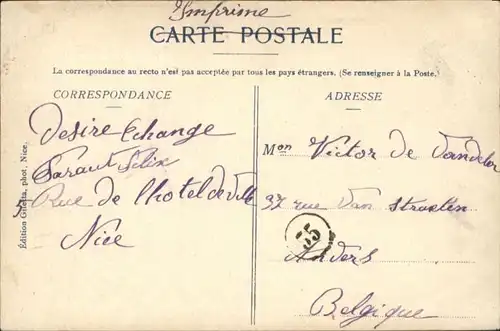 Imprime
CARTE POSTALE
La correspondance au recto n'est pas acceptée par tous les pays étrangers. (Se renseigner à la Poste.)
CORRESPONDANCE
Desire Echange
Felix
Rue de l'hotel de Ville
Nice
Édition Giletta, phot., Nice
ADRESSE
Mon Victor de
37 rue Van Straelen
35
Anvers
Belgique